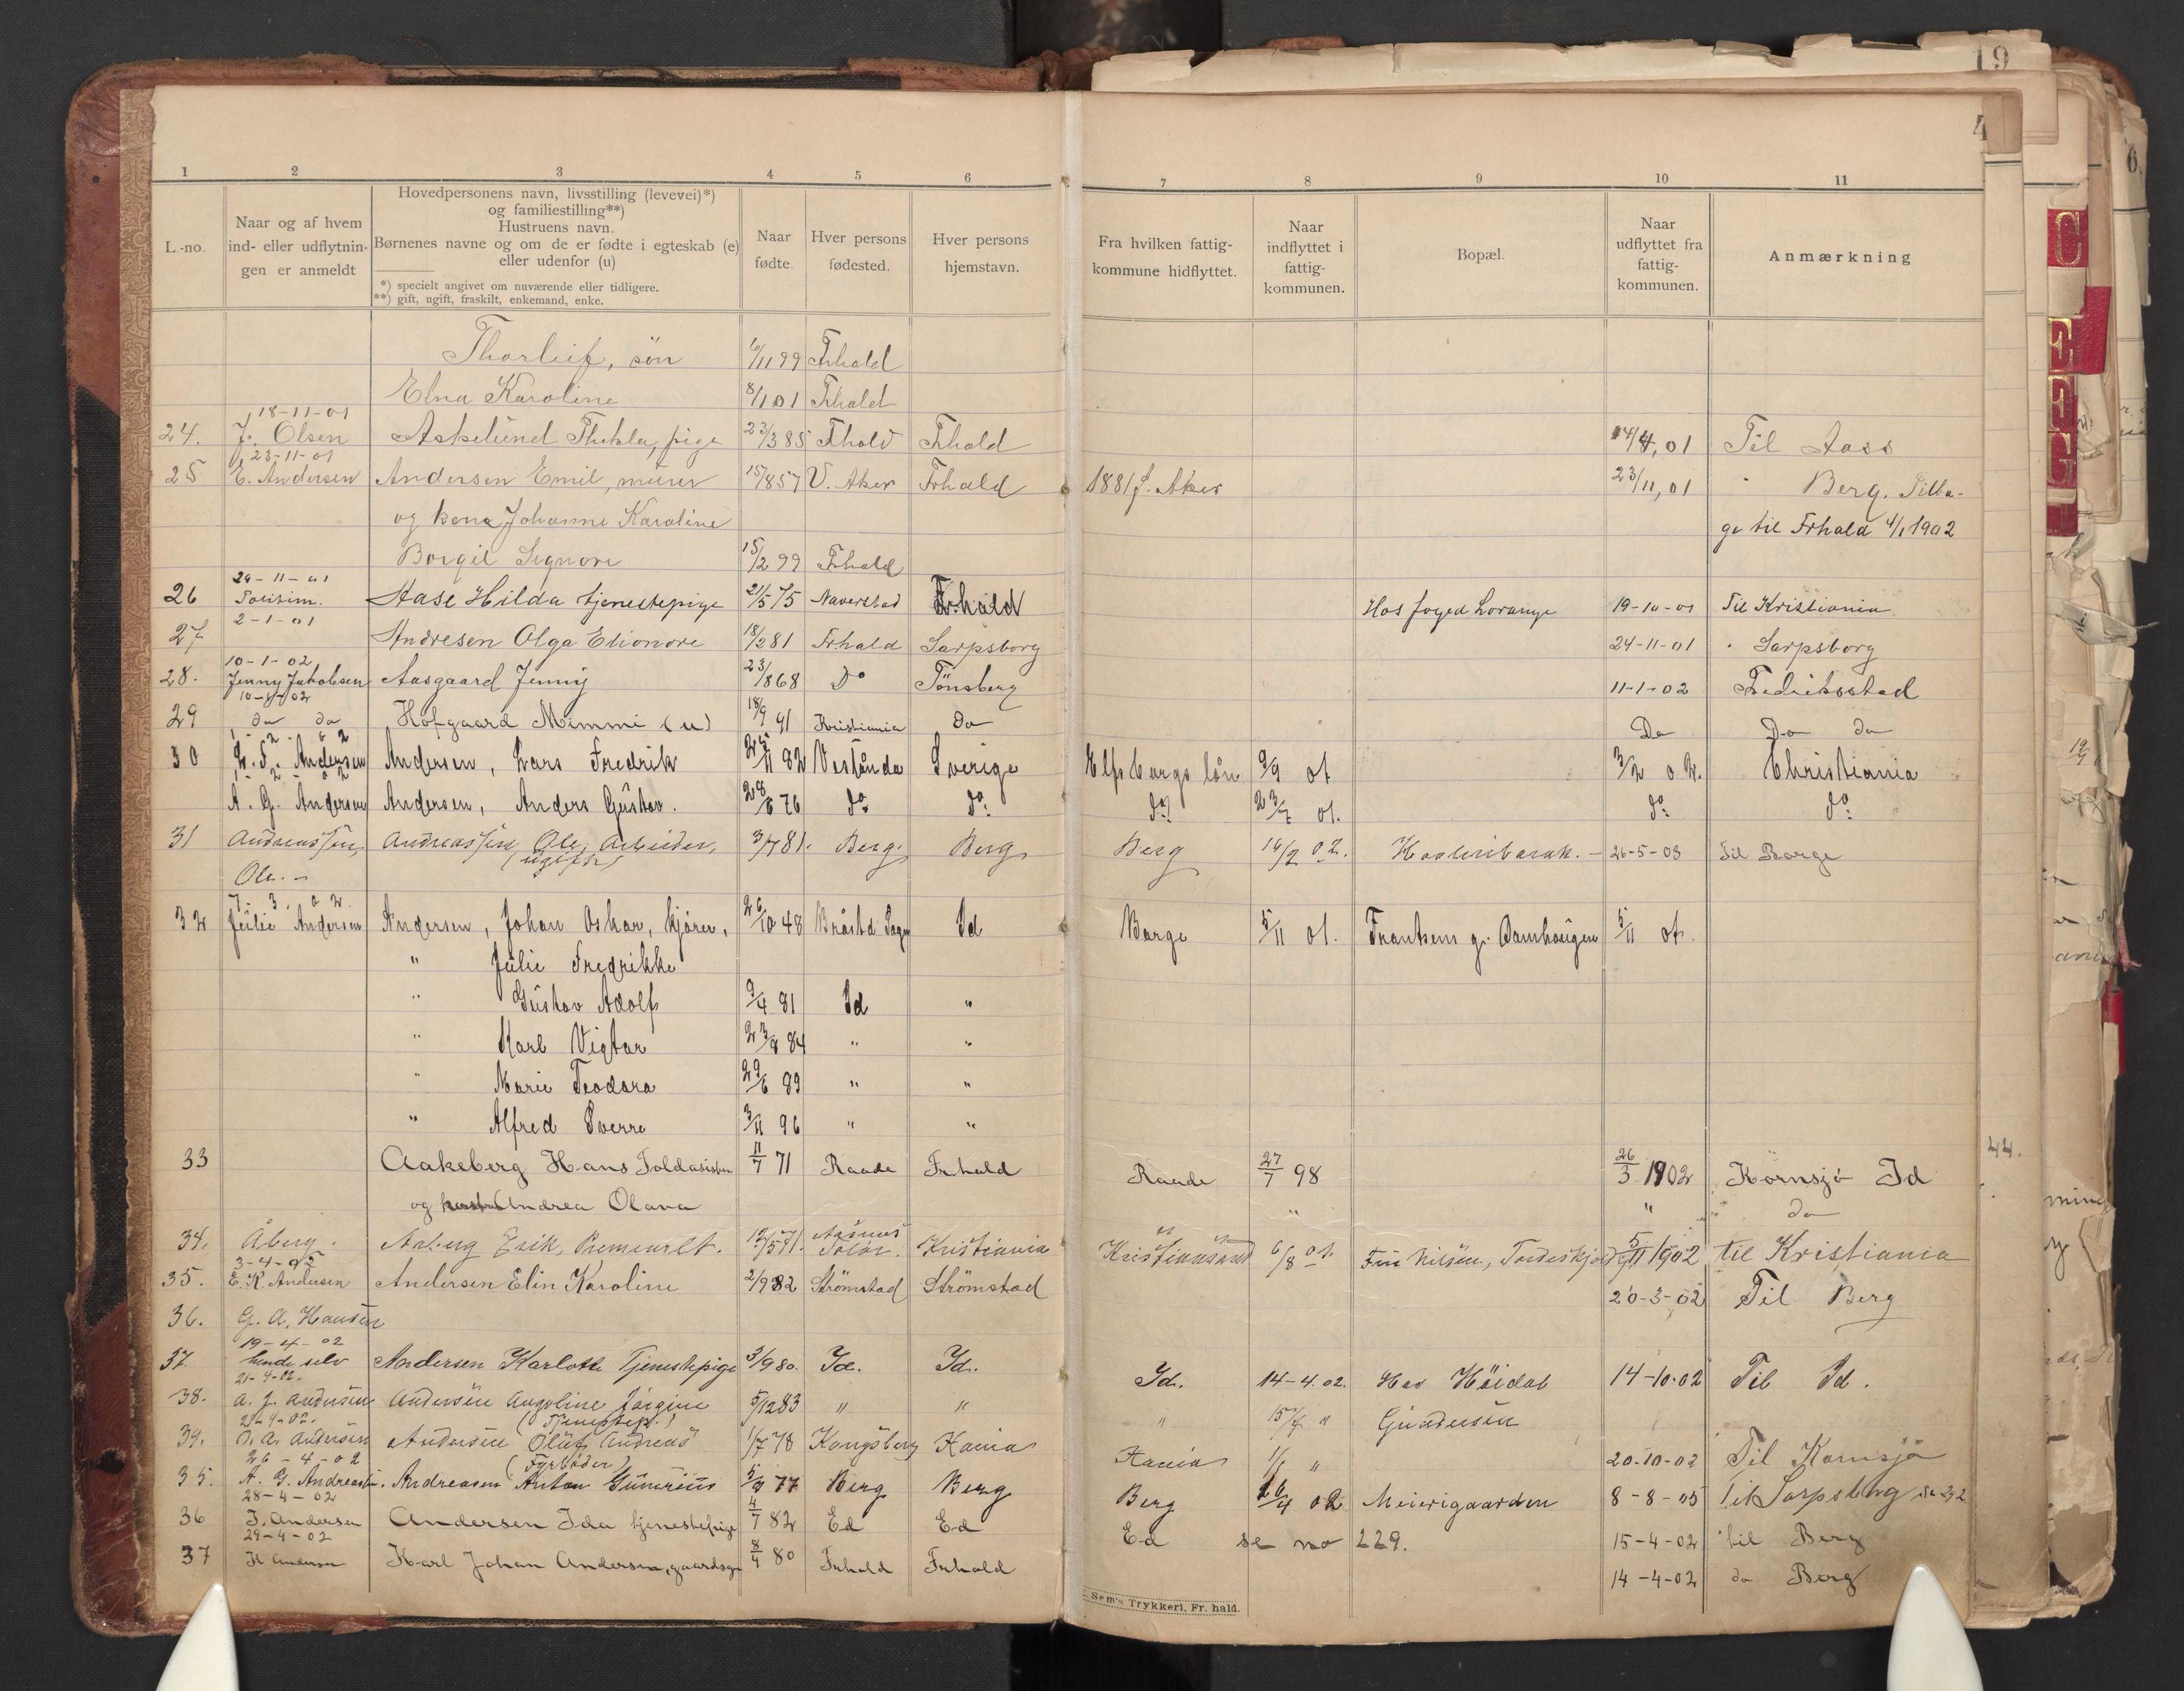 19
4
6.
1 2 3 4 5 6 7 8 9 10 11
L.-no.
Naar og af hvem
ind- eller udflytnin-
gen er anmeldt
Hovedpersonens navn, livsstilling (levevei)*)
og familiestilling**)
Hustruens navn.
Børnenes navne og om de er fødte i egteskab (e)
eller udenfor (u)
*) specielt angivet om nuværende eller tidligere.
**) gift, ugift, fraskilt, enkemand, enke.
Naar
fødte.
Hver persons
fødested.
Hver persons
hjemstavn.
Fra hvilken fattig-
kommune hidflyttet.
Naar
indflyttet i
fattig-
kommunen.
Bopæl.
Naar
udflyttet fra
fattig-
kommunen.
Anmærkning
Thorleif, søn 6/11 99 Frhald
Elna Karoline 8/1 01 Frhald
18-11-01
24. J. Olsen Askelund Thekla, pige 23/3 85 Fhald Frhald 14/4, 01 Til Aass
23-11-01
25 E. Andersen Andersen Emil, murer 15/8 57 V. Aker Frhald 1881 f. Aker 23/11, 01 " Berg. Tilba-
og kona Johanne Karoline ge til Frhald 4/1 1902
Borgil Signore 15/2 99 Frhald
29-11-01
26 Aase Hilda tjenestepige 21/5 75 Naverstad Frhald Hos foged Lorange 19-10-01 Til Kristiania
2-1-01
27 Andresen Olga Elionore 18/2 81 Frhald Sarpsborg 24-11-01 " Sarpsborg
10-1-02
28. Jenny Jakobsen Aasgaard Jenny 23/8 68 Do Tönsberg 11-1-02 Fedriksstad
10-1-02
29 do do Hofgaard Mimmi (u) 18/9 91 Kristiania do Do Do do
1-2-02
30 L. F. Andersen Andersen, Lars Fredrik 11 82 Sverige Elfsborgs län 9/9 01 3/2 02. Christiania
1-2-02
A. G. Andersen Andersen, Anders Gustav. 28/6 76 do: do: do: 23/7 01. do: do:
31 Andreassen, Andreassen Ole, Arbeider, 3/7 81. Berg Berg Berg 16/2 02. 26-5-03 Til Borge
Ole. – (ugift)
7. 3. 02.
32 Julie Andersen Andersen, Johan Oskar, kjörer, 26/10 48 Id Borge 5/11 01. Frantsens g. Damhaugen 5/11 01.
" Julie Fredrikke
" Gustav Adolf 9/4 81 Id "
" Karl Vigtor 23/8 84 " "
" Marie Teodora 29/6 89 " "
" Alfred Sverre 3/11 96 " "
33 Aakeberg Hans Toldasisten 11/7 71 Raade Frhald Raade 27/7 98 26/3 1902 Kornsjö Id
og Andrea Olava " " " do
34. Åberg. Aaberg Erik, Premierlt. 12/5 71. Aasnes Solør. Kristiania Kristianssand 6/8 01. 5/11 1902 til Kristiania
3-4-02
35. E. K. Andersen Andersen Elin Karoline 2/9 82 Strömstad Strömstad 20-3-02 Til Berg
36. G. A. Hansen
19-4-02
37. hende selv Andersen Karlotte Tjenestepige 3/9 80. Id. Id. Id. 14-4.02. Hos Höidal 14-10-02 Til Id.
21-4-02.
38. A. J. Andersen Andersen Angoline Jörgine 5/12 83 " " " 15/4 " Gundersen
21-4-02. (Tjenestep.)
39. O. A. Andersen Andersen Oluf Andreas 1/7 78 Kongsberg Kania Kania 1/1 " 20-10-02 Til Kornsjö
26-4-02 (Fyrböder)
35. A. G. Andreasen. Andreasen Anton Gunerius 5/8 77 Berg Berg Berg 26/4 02 Meierigaarden 8-8-05 Til Sarpsborg
28-4-02
36 I. Andersen Andersen Ida tjenestepige 4/7 82 Ed Ed Ed se no 229. 15-4-02 til Berg
29-4-02
37 K Andersen Karl Johan Andersen, gaardsg 8/4 80 Frhald Frhald 14-4-02 do Berg
Sem's Trykkeri, Fr. hald.